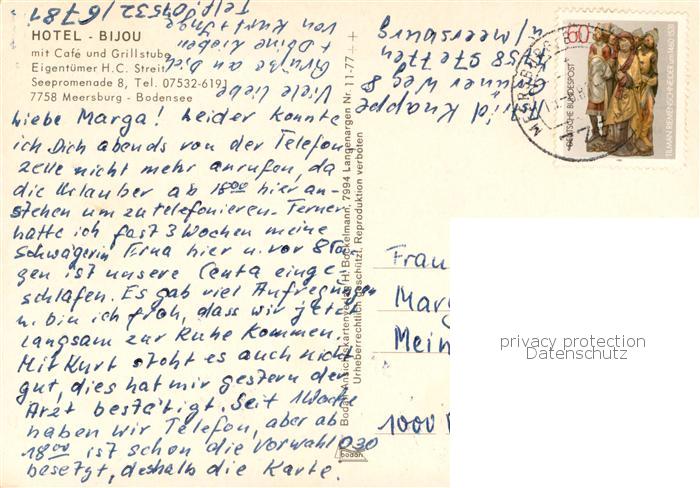 HOTEL - BIJOU
mit Café und Grillstube
Eigentümer H. C. Streit
Seepromenade 8, Tel. 07532-6191
7758 Meersburg - Bodensee
Liebe Marga! Leider konnte
ich Dich abends von der Telefon
zelle nicht mehr anrufen, da
die Urlauber ab 18⁰⁰ hier an-
stehen um zu telefonieren. Ferner
hatte ich fast 3 Wochen meine
Schwägerin Erna hier u. vor 8 Ta-
gen ist unsere Centa einge-
schlafen. Es gab viel Aufregungen
u. bin ich froh, dass wir jetzt
langsam zur Ruhe kommen.
Mit Kurt steht es auch nicht
gut, dies hat mir gestern der
Arzt bestätigt. Seit 1 Woche
haben wir Telefon, aber ab
18⁰⁰ ist schon die Vorwahl 030
besetzt, deshalb die Karte.
Viele liebe
Grüße an Dich
+ Deine Lieben
von Kurt + Inge
Telf. 07532/6781
Astrid Knappe
Grüner Weg 8
7758
u/ Meersburg
Bodan-Ansichtskartenverlag H. Bockelmann, 7994 Langenargen Nr. 11-77++
Urheberrechtlich geschützt. Reproduktion verboten
bodan
60
DEUTSCHE BUNDESPOST
TILMAN RIEMENSCHNEIDER um 1460-1531
Frau
Marg
Mein
1000
privacy protection
Datenschutz